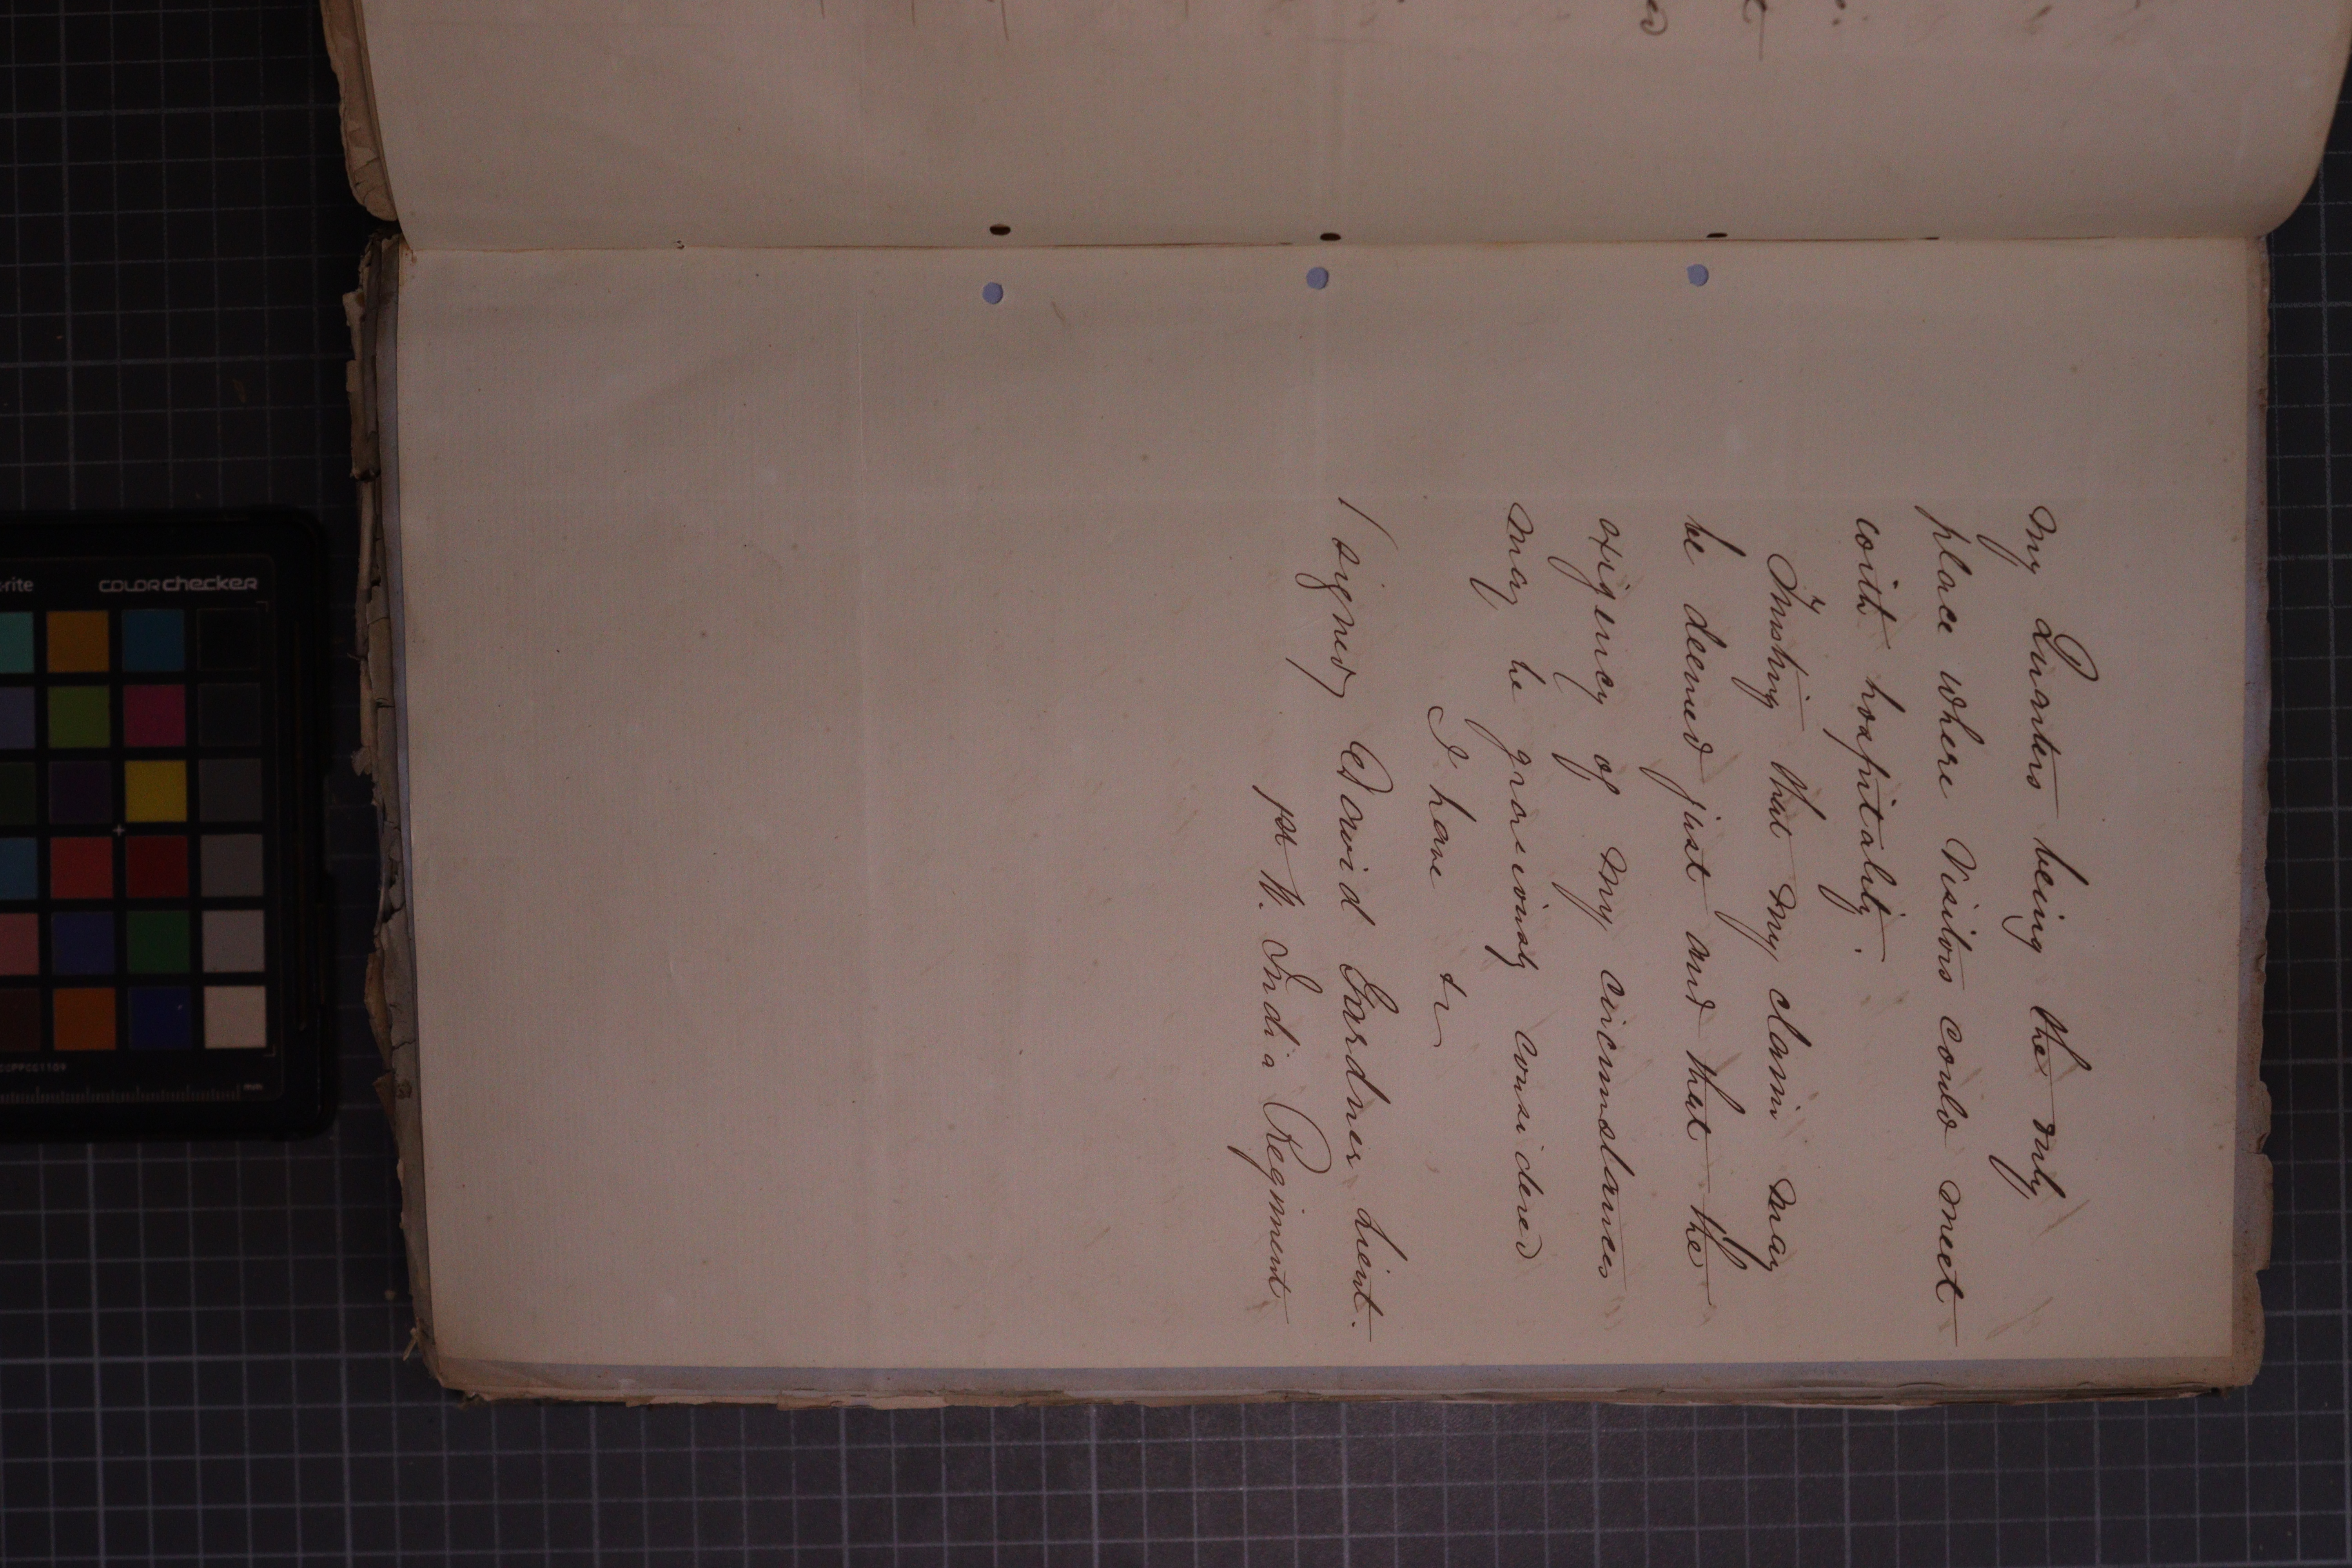 my Quarters being the only
place where Visitors could meet
with hospitality.
Trusting that my claim may
be deemed just and that the
exigency of my circumstances
may be graciously considered
I have &c
(signed) David Gardner Lieut.
1st W. India Regiment
rite
colorchecker
mm